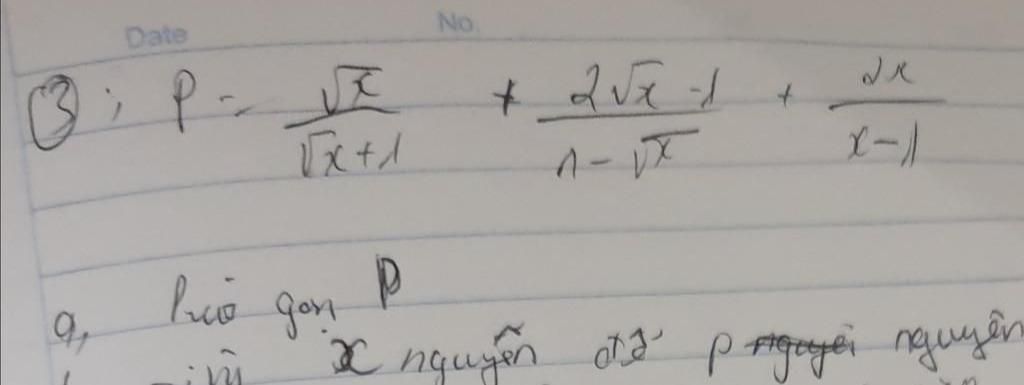 Date No
③; P = \frac{\sqrt{x}}{\sqrt{x}+1} + \frac{2\sqrt{x}-1}{1-\sqrt{x}} + \frac{2x}{x-1}
a, Rút gọn P
x nguyên để P nguyên